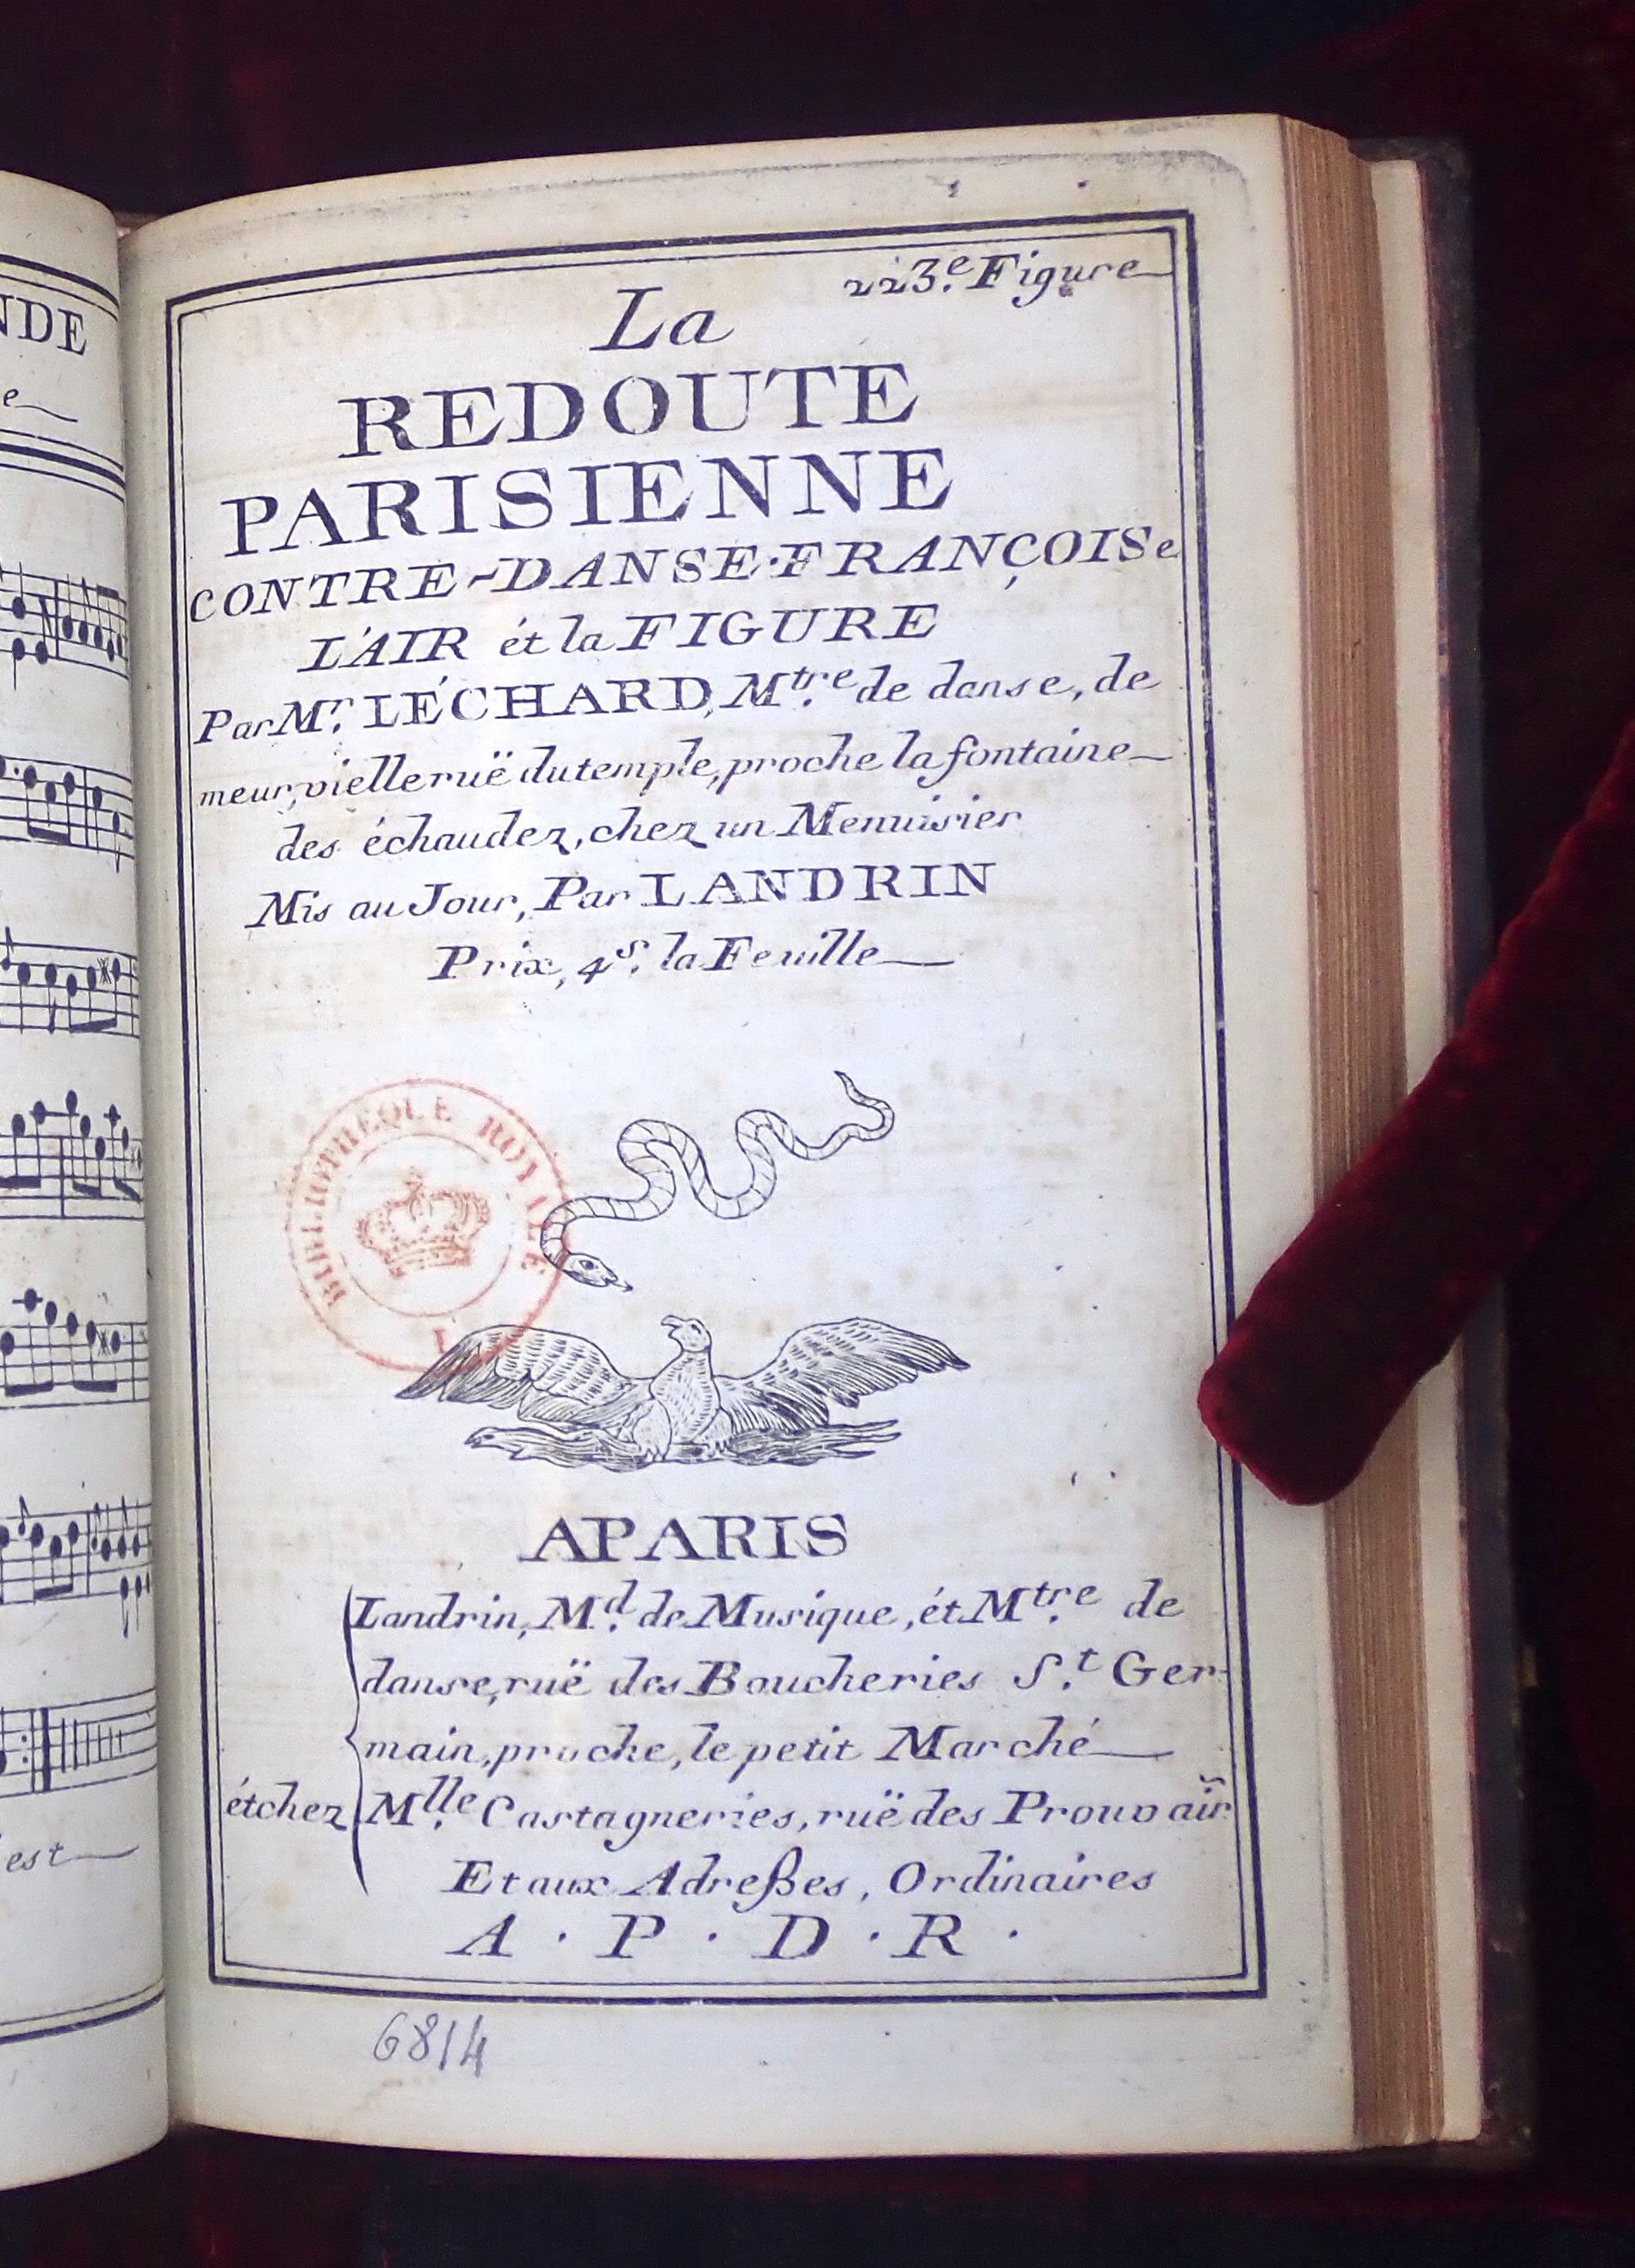 NDE
e
est
223.e Figure
La
REDOUTE
PARISIENNE
CONTRE-DANSE·FRANÇOISe
L'AIR ét la FIGURE
Par Mr. LÉCHARD, Mtre. de danse, de
meur, vielle ruë du temple, proche la fontaine
des échaudez, chez un Menuisier
Mis au Jour, Par LANDRIN
Prix, 4s. la Feuille
BIBLIOTHEQUE ROYALE
APARIS
Landrin, Md. de Musique, ét Mtre. de
danse, ruë des Boucheries St. Ger-
main, proche, le petit Marché
ét chez Mlle. Castagneries, ruë des Prouvair
Et aux Adreßes, Ordinaires
A · P · D · R ·
6814